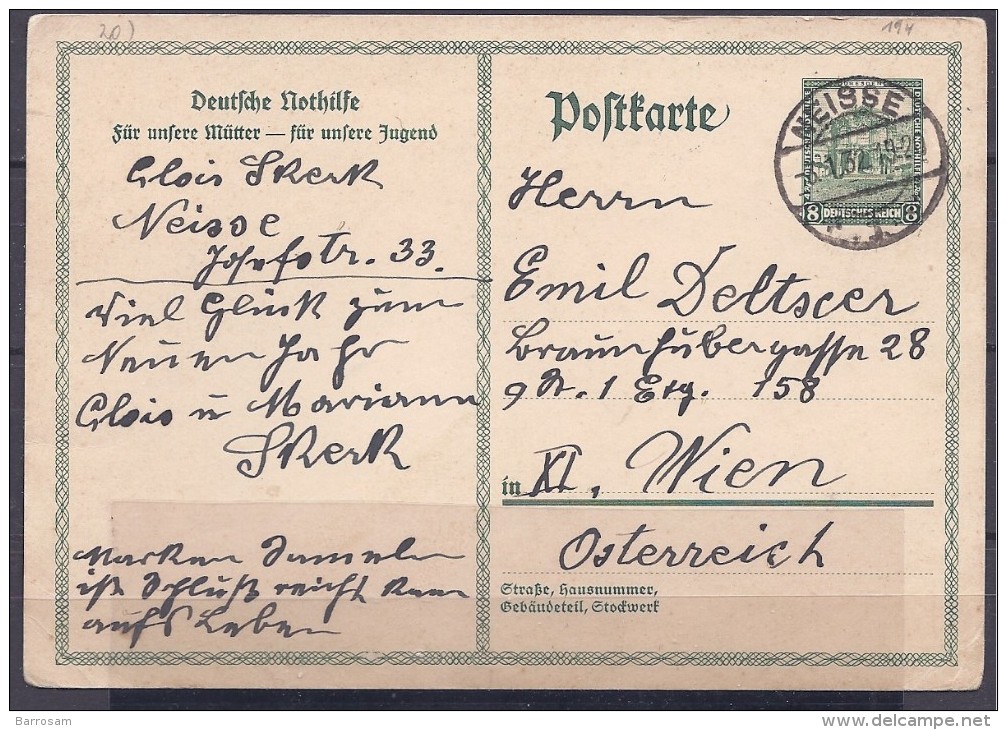 20)
194
Deutsche Nothilfe
Für unsere Mütter — für unsere Jugend
Alois Skerk
Neisse
Josefstr. 33.
Viel Glück zum
Neuen Jahr
Alois u Mariann
Skerk
Marken Sammeln
ist Schluß reicht kaum
aufs Leben
Postkarte
NEISSE
19-20
8 DEUTSCHES REICH 8
Herrn
Emil Deltscer
Braunhubergasse 28
9 St. 1 Etg. 158
in XI, Wien
Österreich
Straße, Hausnummer,
Gebäudeteil, Stockwerk
Barrosam
delcampe.net